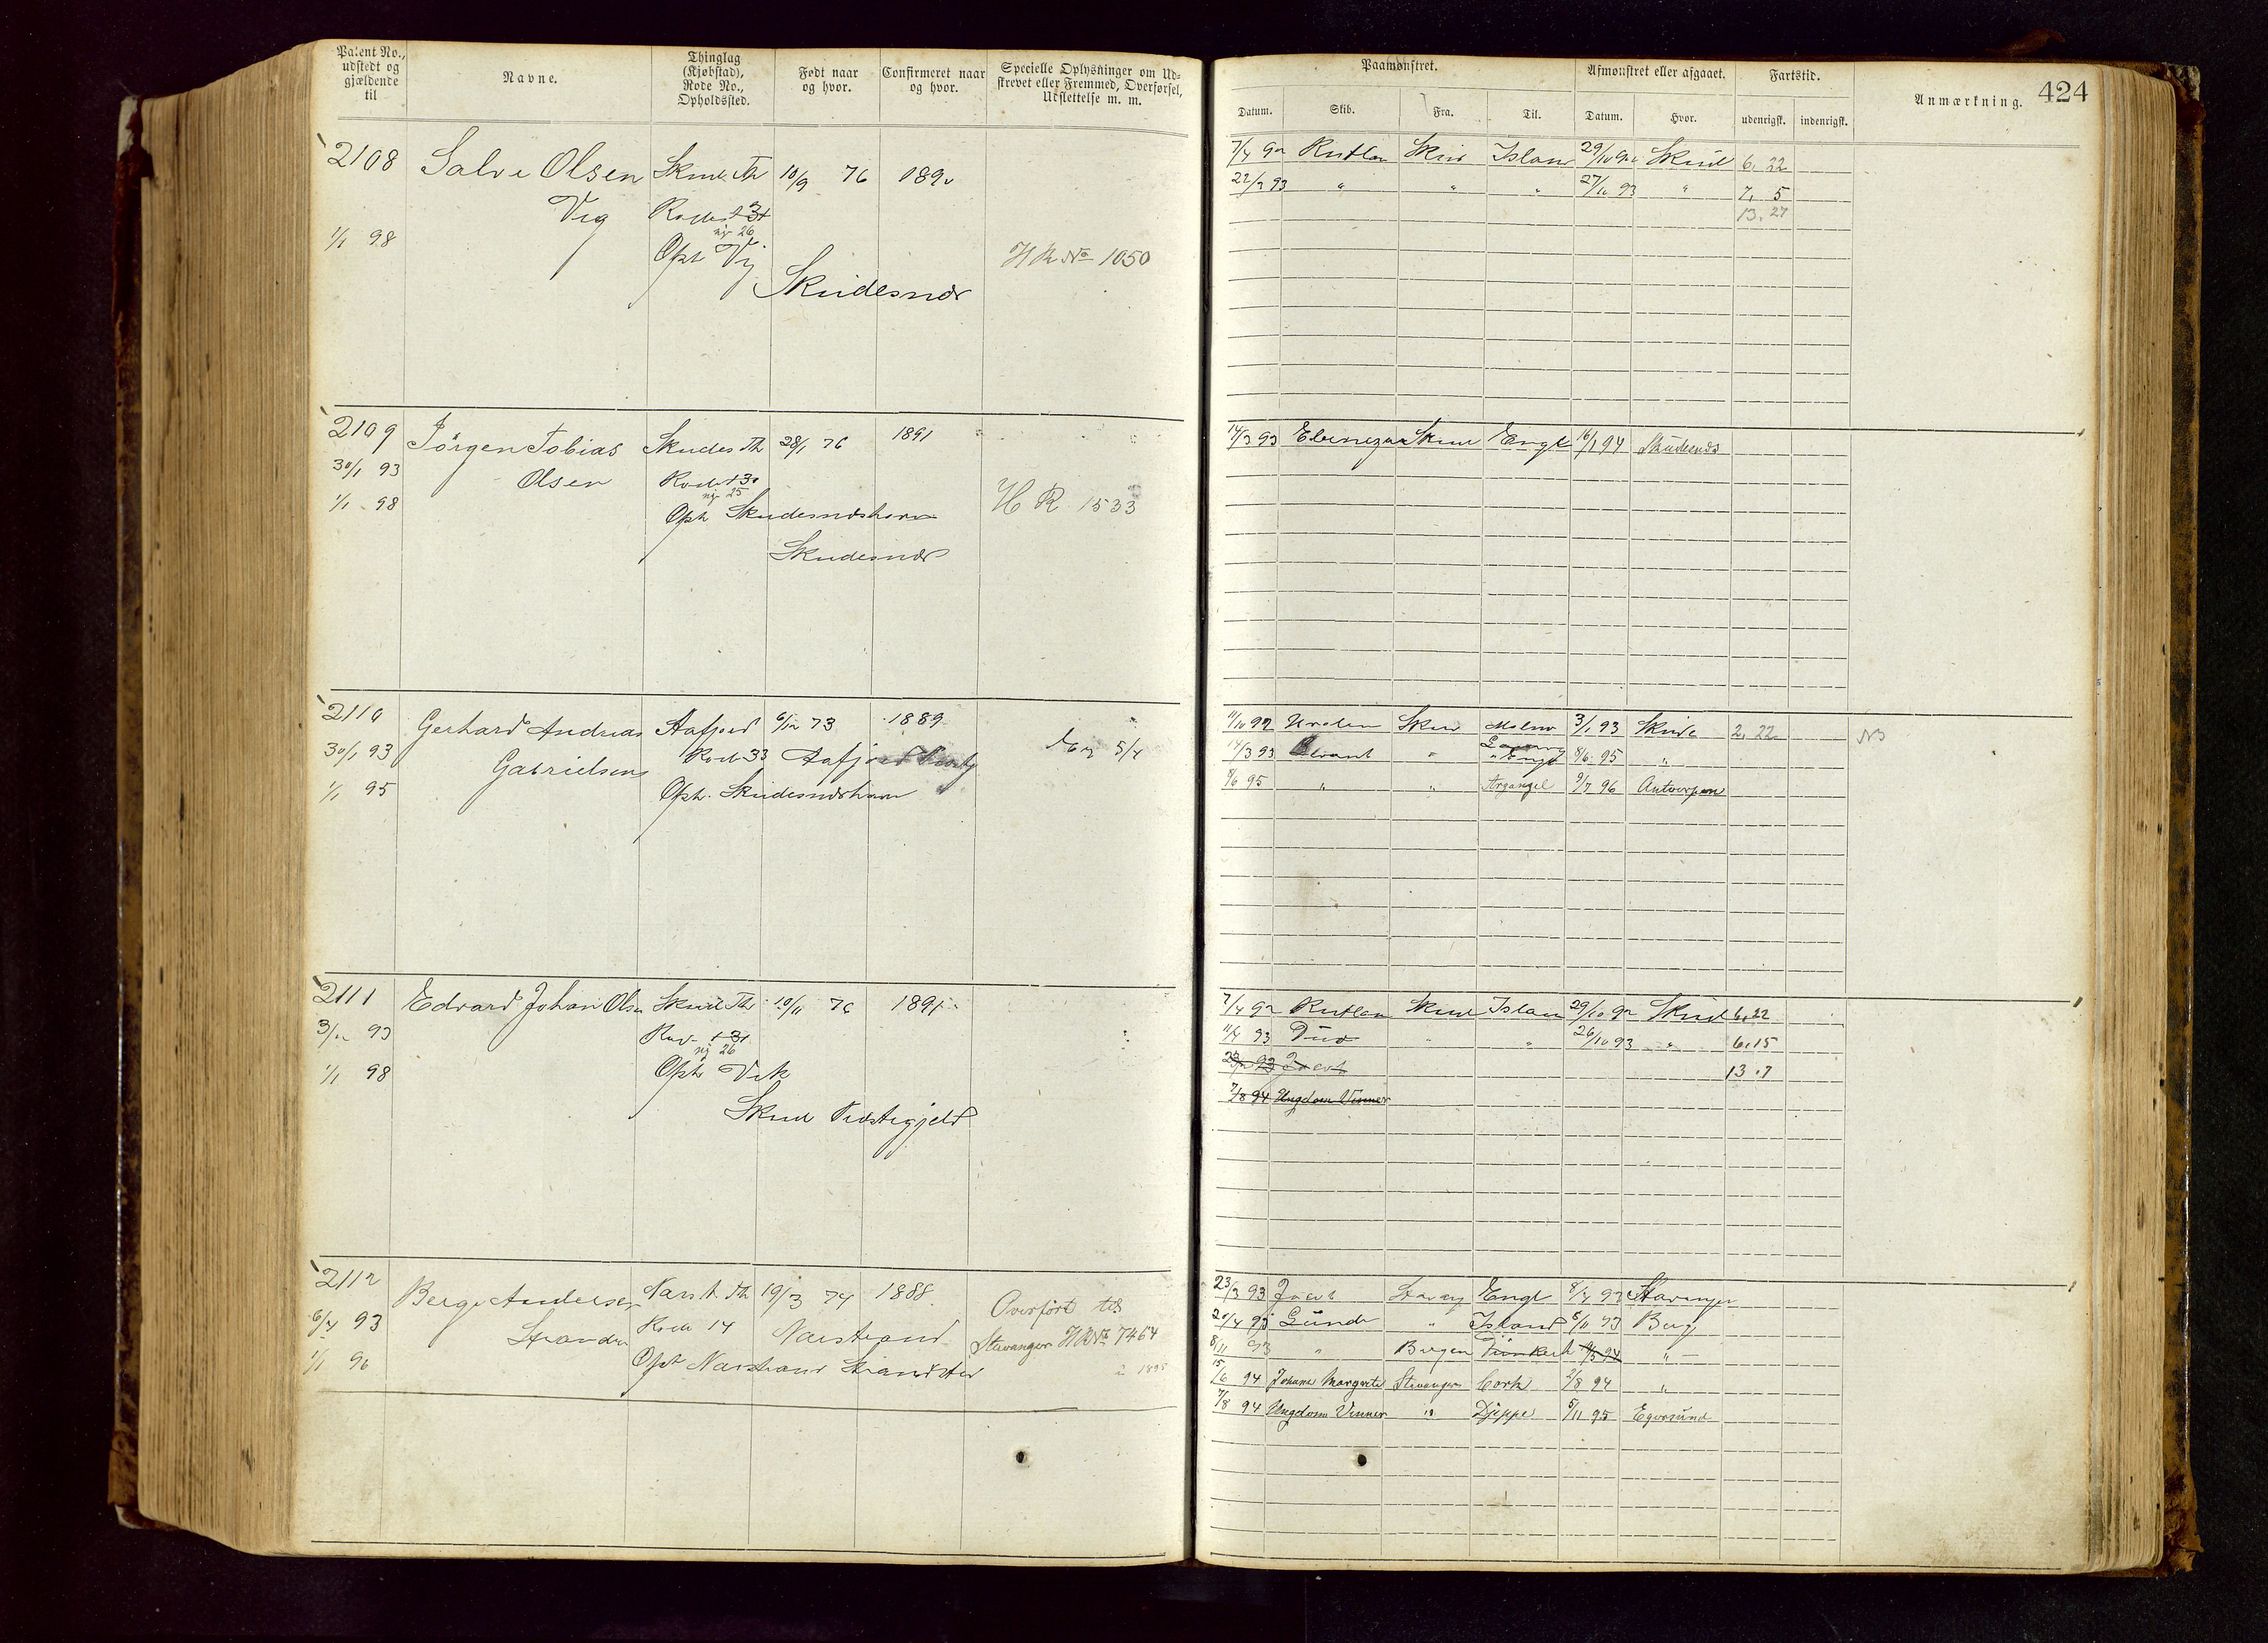 Patent No., udstedt og gjældende til
Navne.
Thinglag (Kjøbstad), Rode No., Opholdssted.
Født naar og hvor.
Confirmeret naar og hvor.
Specielle Oplysninger om Udskrevet eller Fremmed, Overførsel, Udslettelse m. m.
Paamønstret.
Afmønstret eller afgaaet.
Fartstid.
Anmærkning.
424
Datum. Skib. Fra. Til. Datum. Hvor. udenrigsk. indenrigsk.
2108 Salve Olsen Skud. Th 10/9 76 1892
Vig Rode
ny 26
1/1 98 Oph Vig
HR No 1050
Skudesnæs
7/4 92 Rutlan Skud Islan 29/10 92 Skud 6. 22
22/3 93 " " " 27/10 93 " 7. 5
13. 27
2109 Jörgen Tobias Skudes Th 28/1 76 1891
30/1 93 Olsen
ny 25
1/1 98 Oph Skudesnæshavn
HR 1533
Skudesnæs
14/3 93 Ebenezar Skud Engl 16/1 94 Skudesnæs
2110 Gerhard Andreas Aafjord 6/12 73 1889
30/1 93 Gabrielsen Rode 33 Aafjord
1/1 95 Oph. Skudesnæshavn
11/10 92 Skud Malmø 3/1 93 Skude 2. 22
14/3 93 " Engl 8/6 95 "
8/6 95 " " Argangel 9/7 96 Antwerpen
2111 Edvard Johan Olsen Skud Th 10/11 76 1891
3/12 93
ny 26
1/1 98 Oph Vik
Skud Præstegjeld
7/4 92 Rutlan Skud Islan 29/10 92 Skud 6. 22
11/4 93 Duo " " 26/10 93 " 6. 15
23/3 93 Jacob 13. 7
7/8 94 Ungdom Venner
2112 Berge Andersen Narst. Th 19/3 74 1888
6/4 93 Strandn Rode 14 Narstrand
1/1 96 Oph Narstrand Strandsted
Overført til
Stavanger HR No 7464
1895
23/3 93 Jacob Stavang Engl 8/4 93 Stavanger
20/4 93 Gunde " Island 5/11 93 Berg
8/11 93 " Bergen Dunkerk 9/5 94 "
15/6 94 Johane Margrete Stavanger Cork 2/8 94 "
7/8 94 Ungdom Venner " Djeppe 5/11 95 Egersund